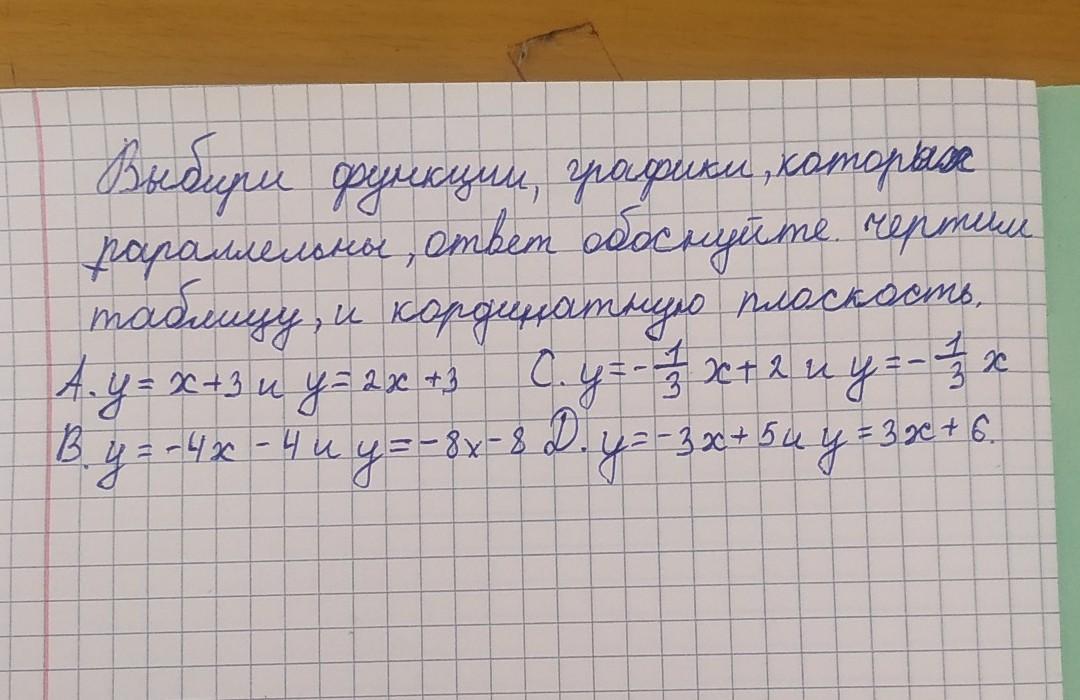 Выбири функции, графики, которых
параллельны, ответ обоснуйте. чертим
таблицу, и кординатную плоскость.
A. y = x+3 и y = 2x +3 C. y = -1/3 x + 2 и y = -1/3 x
B. y = -4x - 4 и y = -8x - 8 D. y = -3x + 5 и y = 3x + 6.